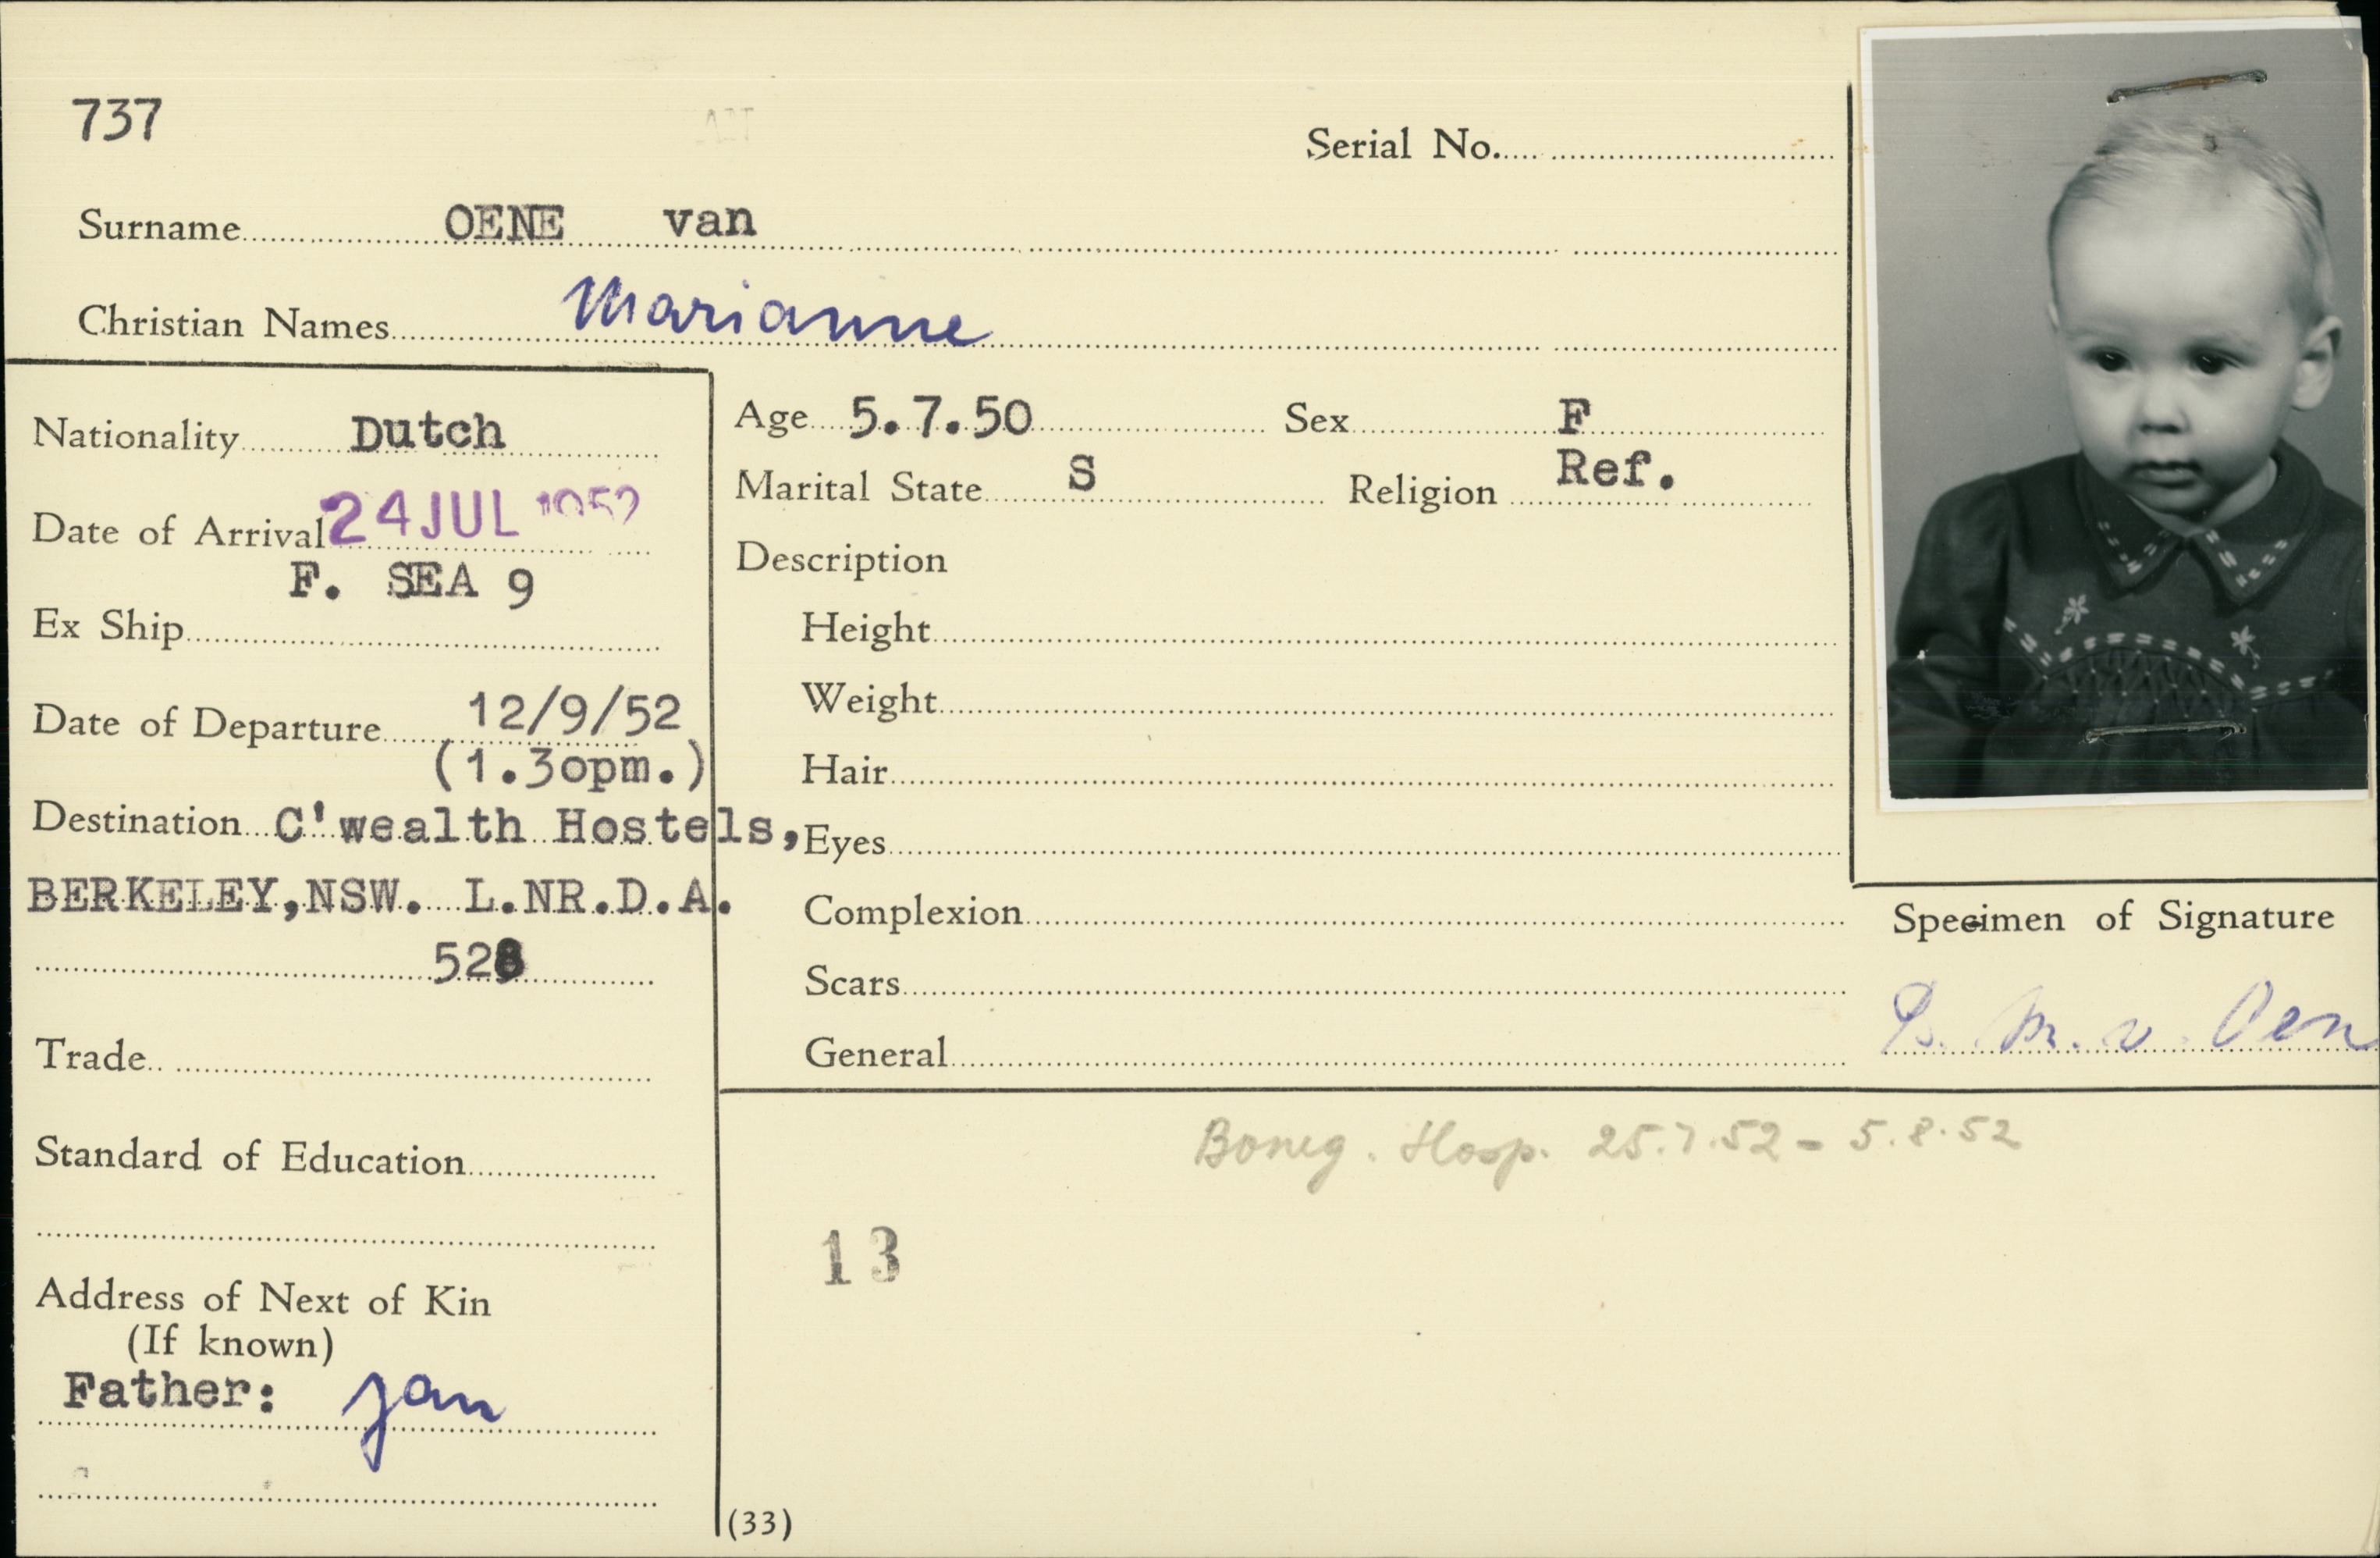 737
Serial No.
Surname OENE van
Christian Names Marianne
Nationality Dutch
Date of Arrival 24 JUL 1952
F. SEA 9
Ex Ship
Date of Departure 12/9/52
(1.30pm.)
Destination C'wealth Hostels,
BERKELEY,NSW. L.NR.D.A.
528
Trade
Standard of Education
Address of Next of Kin
(If known)
Father: Jan
Age 5.7.50 Sex F
Marital State S Religion Ref.
Description
Height
Weight
Hair
Eyes
Complexion
Scars
General
Specimen of Signature
M. v. Oen
Boneg. Hosp. 25.7.52 - 5.8.52
13
(33)